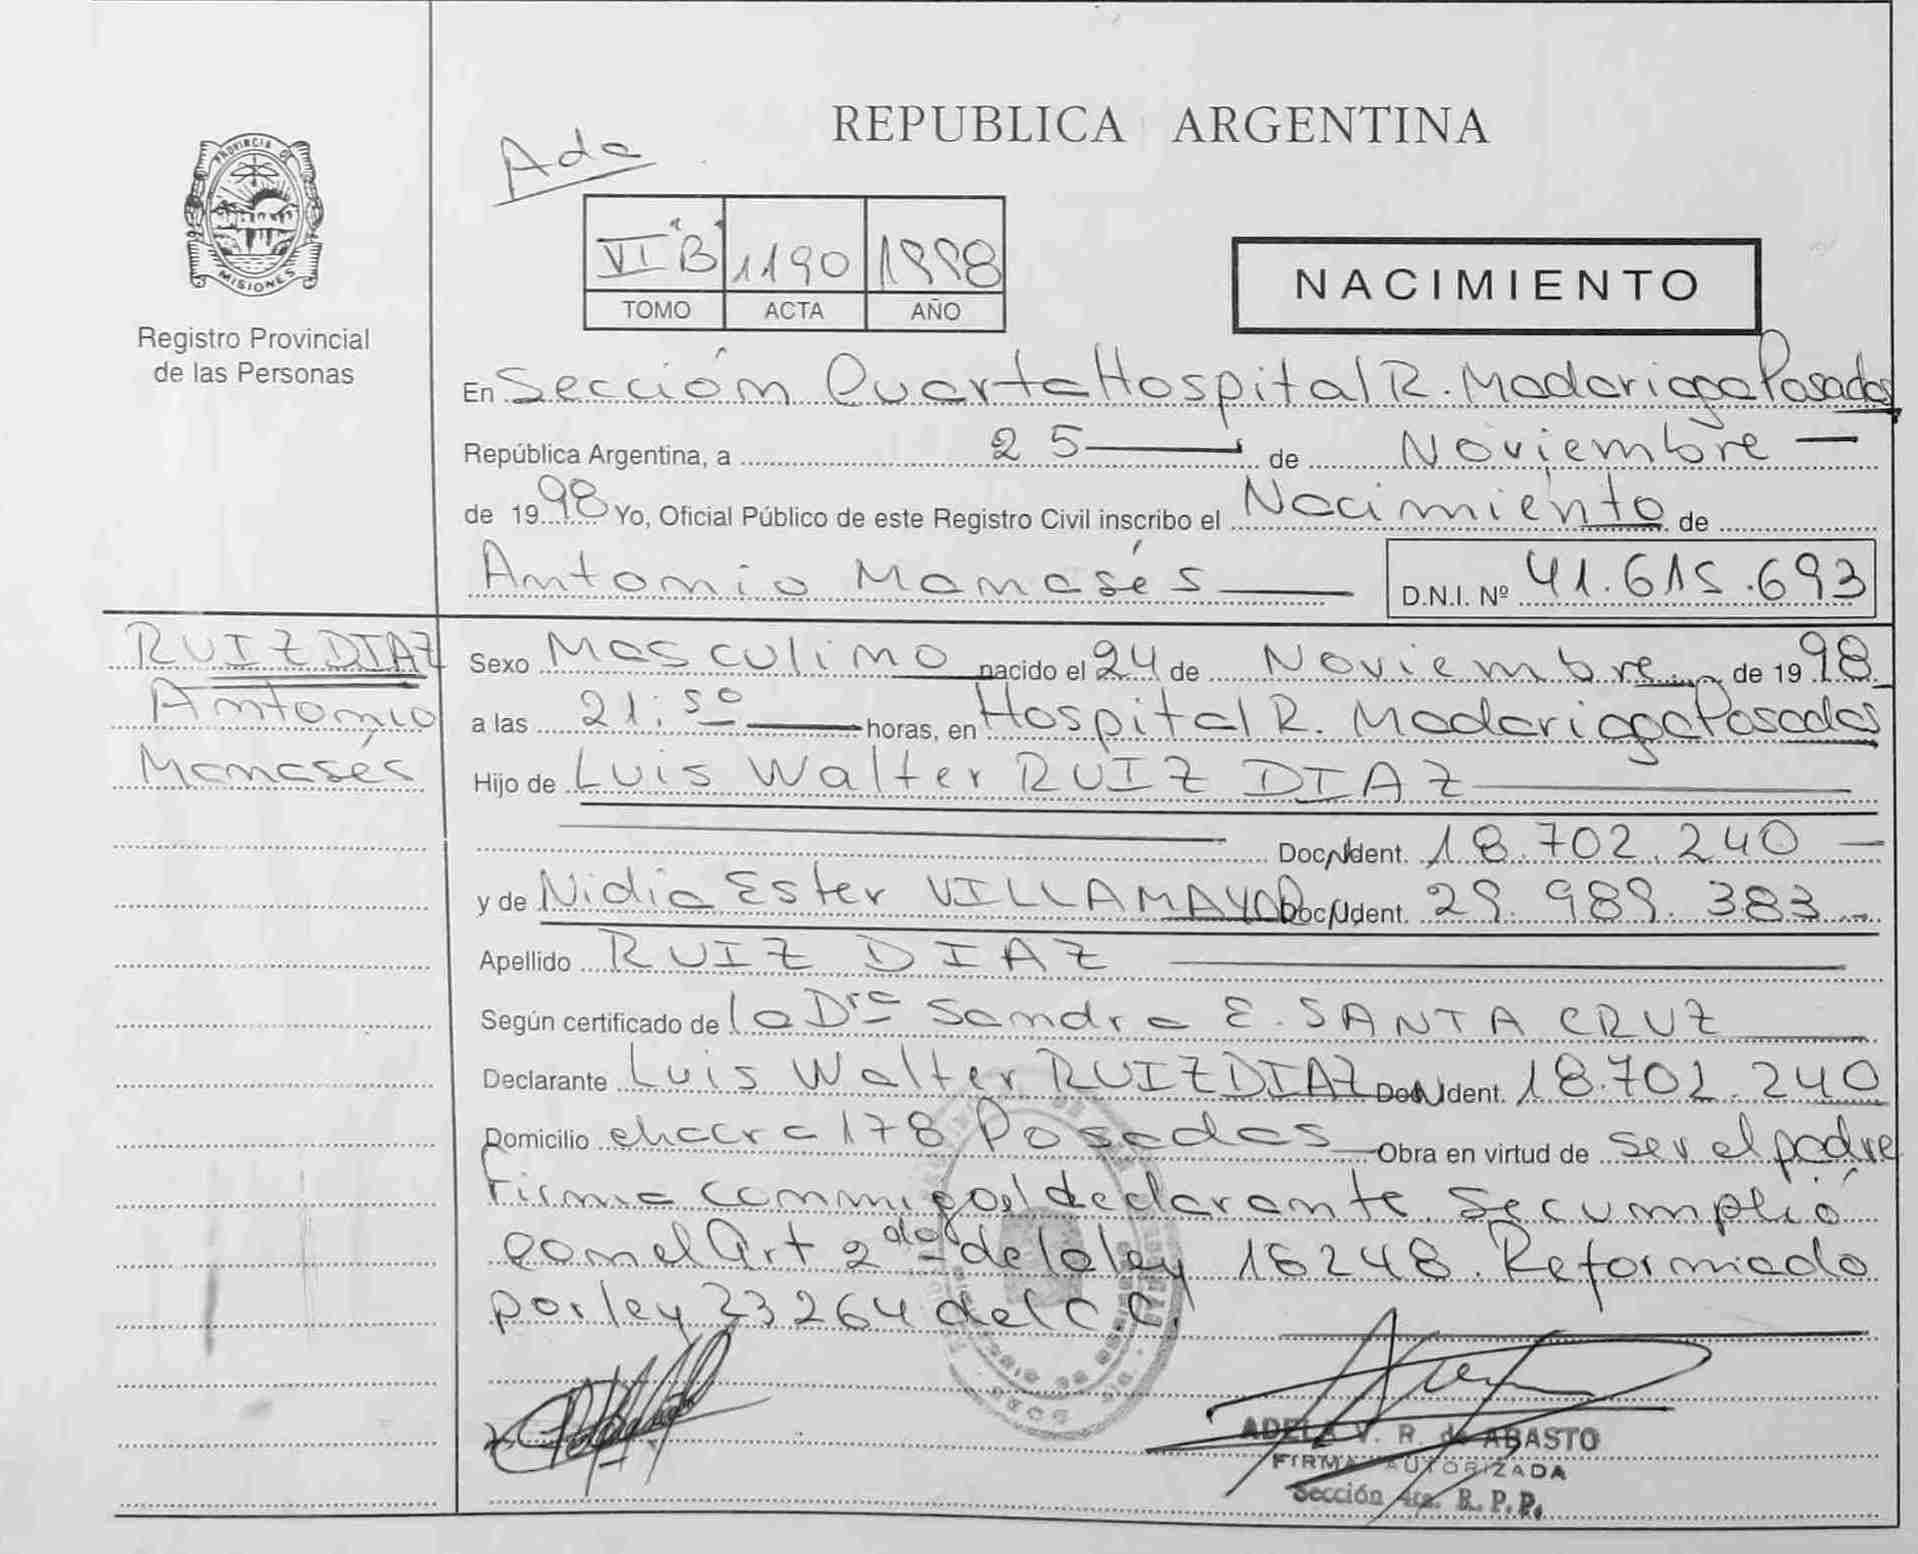 REPUBLICA ARGENTINA
Ada
PROVINCIA DE
MISIONES
Registro Provincial
de las Personas
VI "B" 1190 1998
TOMO ACTA AÑO
NACIMIENTO
En Sección Cuarta Hospital R. Madariaga Posadas
República Argentina, a 25 de Noviembre
de 1998 Yo, Oficial Público de este Registro Civil inscribo el Nacimiento de
Antonio Manasés D.N.I. Nº 41.615.693
RUIZ DIAZ
Antonio
Manasés
Sexo Masculino nacido el 24 de Noviembre de 1998
a las 21:50 horas, en Hospital R. Madariaga Posadas
Hijo de Luis Walter RUIZ DIAZ
Doc. N. Ident. 18.702.240
y de Nidia Ester VILLAMAYOR Doc. N. Ident. 29.989.383
Apellido RUIZ DIAZ
Según certificado de la Dra Sandra E. SANTA CRUZ
Declarante Luis Walter RUIZ DIAZ Doc. N. Ident. 18.702.240
Domicilio chacra 178 Posadas Obra en virtud de ser el padre
Firma conmigo el declarante. Se cumplió
con el Art 2do de la ley 18248. Reformado
por ley 23264 del C.C.
ADELA V. R. de ABASTO
FIRMA AUTORIZADA
Sección 4ta. R. P. P.